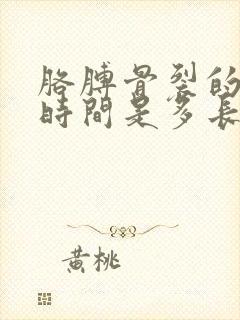 胳膊骨裂的
時間是多長
黃桃